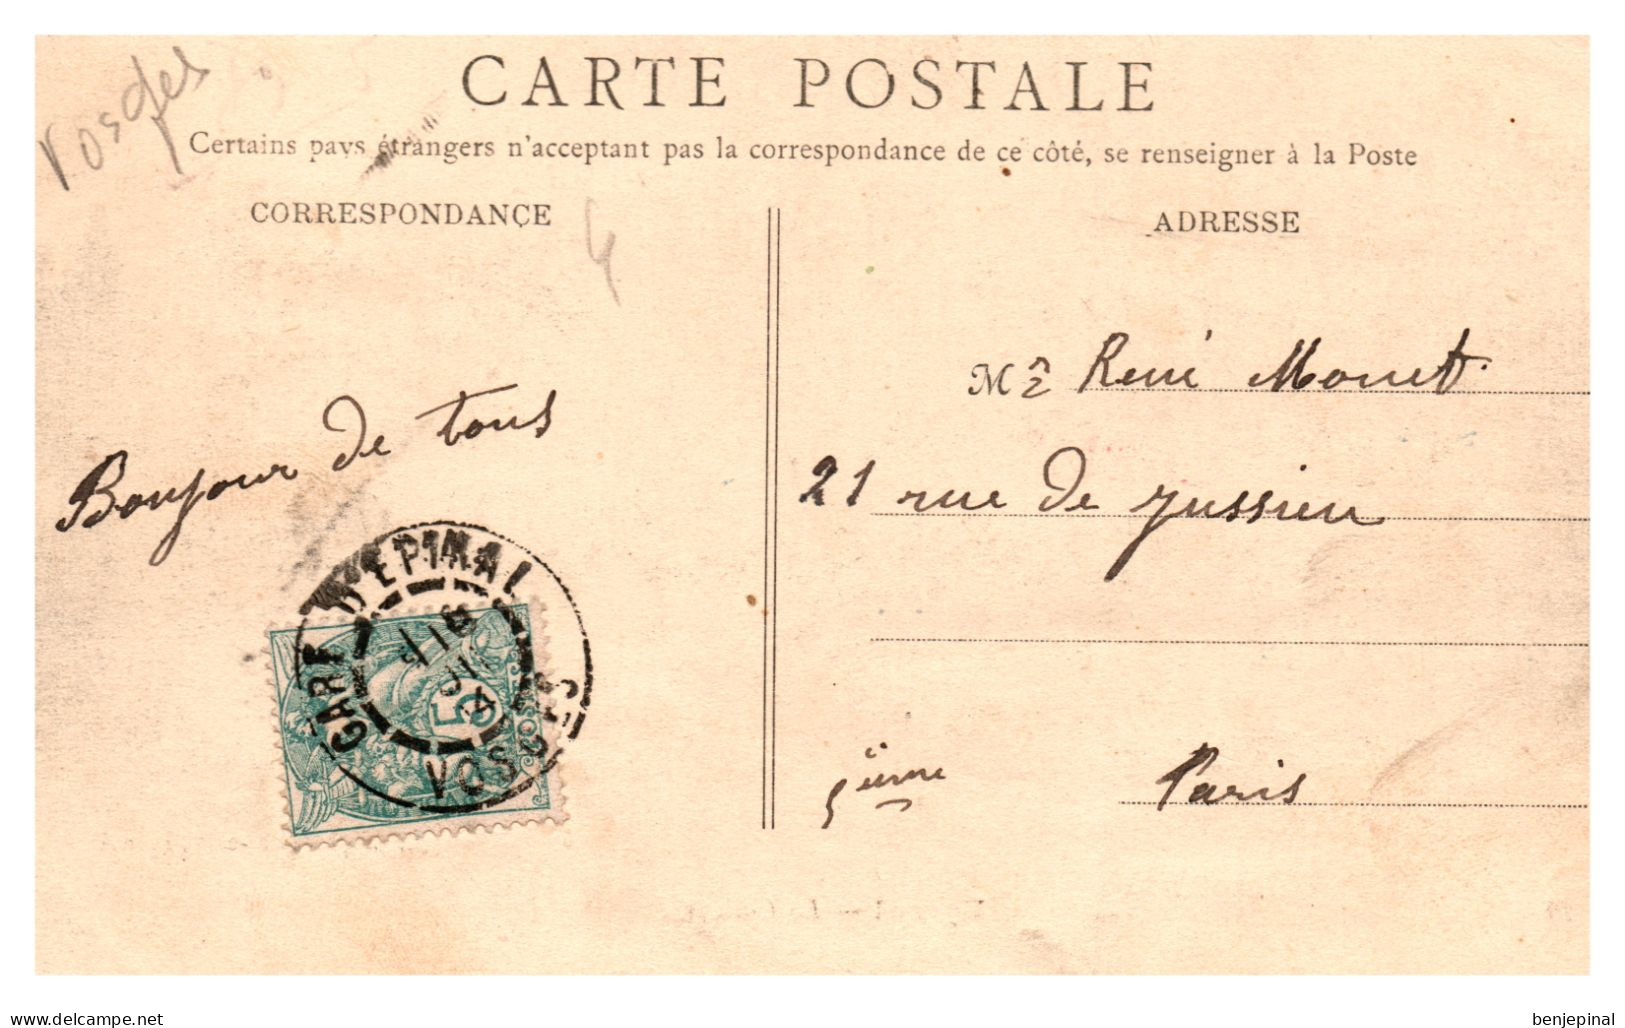 Vosges
CARTE POSTALE
Certains pays étrangers n'acceptant pas la correspondance de ce côté, se renseigner à la Poste
CORRESPONDANCE
4
Bonjour de tous
GARE D'EPINAL
VOSGES
5
ADRESSE
Mr René Monet
21 rue de Jussieu
5ième Paris
www.delcampe.net
benjepinal